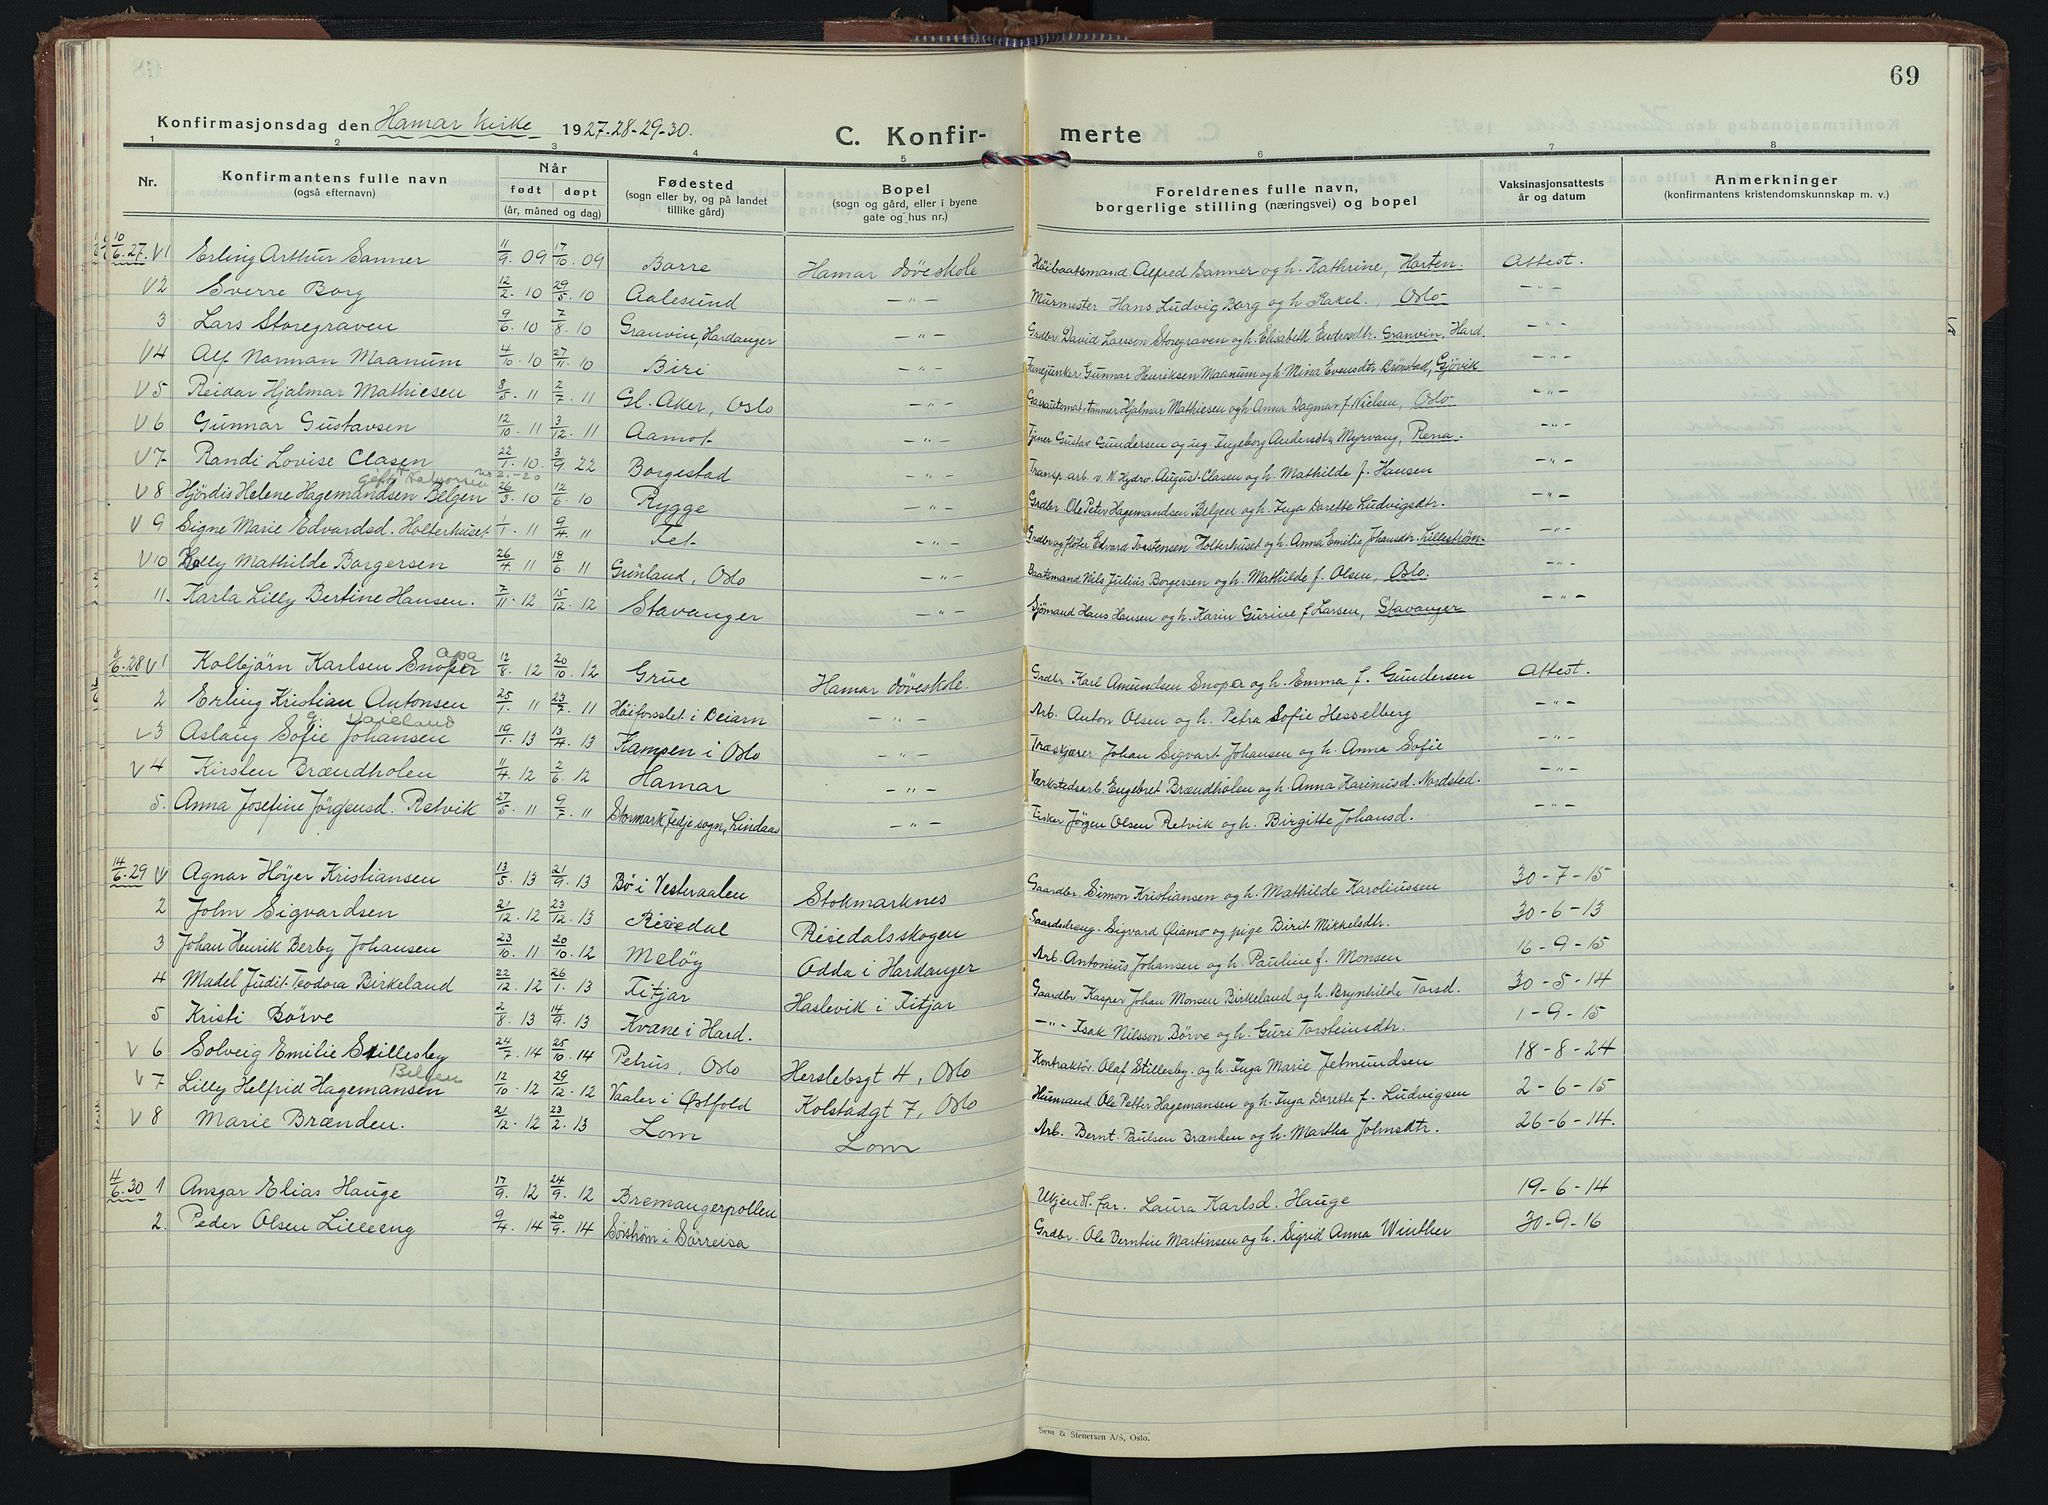 69
Konfirmasjonsdag den Hamar kirke 1927-28-29-30.
C. Konfir- merte
1 2 3 4 5 6 7 8
Nr. Konfirmantens fulle navn (også efternavn) Når født døpt (år, måned og dag) Fødested (sogn eller by, og på landet tillike gård) Bopel (sogn og gård, eller i byene gate og hus nr.) Foreldrenes fulle navn, borgerlige stilling (næringsvei) og bopel Vaksinasjonsattests år og datum Anmerkninger (konfirmantens kristendomskunnskap m. v.)
10/6.27. V1 Erling Arthur Sanner 11/9.09 17/10.09 Borre Hamar döveskole Høibaatsmand Alfred Sanner og h. Kathrine, Horten. Attest.
V2 Sverre Borg 12/2.10 29/5.10 Aalesund -"- Murmester Hans Ludvig Borg og h. Rakel., Oslo- -"-
3 Lars Storegraven 9/6.10 7/8.10 Granvin, Hardanger -"- Grdbr David Larsson Storegraven og h. Elisabeth Endresdtr. Granvin, Hard. -"-
V4 Alf Norman Maanum 4/10.10 27/11.10 Biri -"- Fanejunker Gunnar Henriksen Maanum og h. Mina Evensdtr Brønstad, Gjövik -"-
V5 Reidar Hjalmar Mathiesen 8/5.11 2/7.11 Gl. Aker, Oslo -"- Hjalmar Mathiesen og h. Anna Dagmar f. Nielsen, Oslo- -"-
V6 Gunnar Gustavsen 12/10.11 3/12.11 Aamot -"- Tjener Gustav Gundersen og ug. Ingeborg Andersdtr Myrvang, Rena. -"-
V7 Randi Lovise Clasen 22/1.10. 3/9.22 Borgestad -"- Transp. arb. v. N. Hydro. August Clasen og h. Mathilde f. Hansen -"-
V8 Hjördis Helene Hagemandsen Belgen 26/3.10 12/6.10 Rygge -"- Grdbr. Ole Peter Hagemandsen Belgen og h. Inga Dorette Ludvigsdtr. -"-
V9 Signe Marie Edvardsd. Holterhuset 1/1.11 9/4.11 Fet -"- Grdbr og fløter Edvard Torstensen Holterhuset og h. Anna Emilie Johansdtr. Lillestrøm- -"-
V10 Lolly Mathilde Borgersen 26/4.11 18/6.11 Grönland, Oslo -"- Baatsmand Nils Julius Borgersen og h. Mathilde f. Olsen, Oslo. -"-
11. Karla Lilly Bertine Hansen. 7/11.12 15/12.12 Stavanger -"- Sjömand Hans Hansen og h. Karin Gurine f Larsen, Stavanger -"-
8/6.28 V1 Kolbjörn Karlsen Snoper apa 12/8.12 20/10.12 Grue Hamar döveskole. Grdbr. Karl Amundsen Snoper og h. Emma f. Gundersen Attest.
2 Erling Kristian Antonsen 25/1.11 23/7.11 Höiforsslet i Beiarn -"- Arb. Anton Olsen og h. Petra Sofie Hesselberg -"-
V3 Aslaug Sofie Johansen 19/1.13 13/4.13 Kampen i Oslo -"- Træskjærer Johan Sigvart Johansen og h. Anna Sofie -"-
V4 Kirsten Brændholen 11/4.12 2/6.12 Hamar -"- Værkstedsarb. Engebret Brændholen og h. Anna Karinusd. Nordsted. -"-
5. Anna Josefine Jörgensd. Retvik 27/5.11 9/7.11 Stormark, Fedje sogn, Lindaas -"- Fisker Jörgen Olsen Retvik og h. Birgitte Johansd. -"-
14/6.29 V1 Agnar Höyer Kristiansen 13/5.13 21/9.13 Bö i Vesteraalen Stokmarknes Gaardbr. Simon Kristiansen og h. Mathilde Karoliussen 30-7-15
2 John Sigvardsen 21/12.12 23/12.13 Reisedal Reisedalsskogen Gaardsdreng. Sigvard Qiamo og pige Birit Mikkelsdtr. 30-6-13
3 Johan Henrik Derby Johansen 23/10.11 20/10.12 Melöy Odda i Hardanger Arb. Antonius Johansen og h. Pauline f. Monsen 16-9-15
4 Madel Judit Teodora Birkeland 22/12.12 26/1.13 Fitjar Haslevik i Fitjar Gaardbr. Kasper Johan Monsen Birkeland og h. Brynhilde Torsd. 30-5-14
5 Kristi Börve 2/8.13 14/9.13 Kvane i Hard. -"- Isak Nilsson Börve og h. Guri Torsteinsdtr. 1-9-15
V6 Solveig Emilie Stillesby 24/7.14 25/10.14 Petrus, Oslo Herslebsgt 4, Oslo Kontraktör. Olaf Stillesby. og h. Inga Marie Jetmundsen 18-8-24
V7 Lilly Helfrid Hagemansen Belgen 12/10.12 29/12.12 Vaaler i Østfold Kolstadgt 7, Oslo Husmand Ole Petter Hagemansen og h. Inga Dorette f. Ludvigsen 2-6-15
V8 Marie Brænden. 21/12.12 23/2.13 Lom Lom Arb. Bernt. Paulsen Brænden og h. Martha Johnsdtr. 26-6-14.
4/6.30 1 Ansgar Elias Hauge 17/9.12 24/9.12 Bremangerpollen Ukjendt far. Laura Karlsd. Hauge 19-6-14
2. Peder Olsen Lilleeng 9/4.14 20/9.14 Sörström i Sörreisa Grdbr. Ole Berntin Martinsen og h. Sigrid Anna Winther 30-9-16
Sem & Stenersen A/S, Oslo.